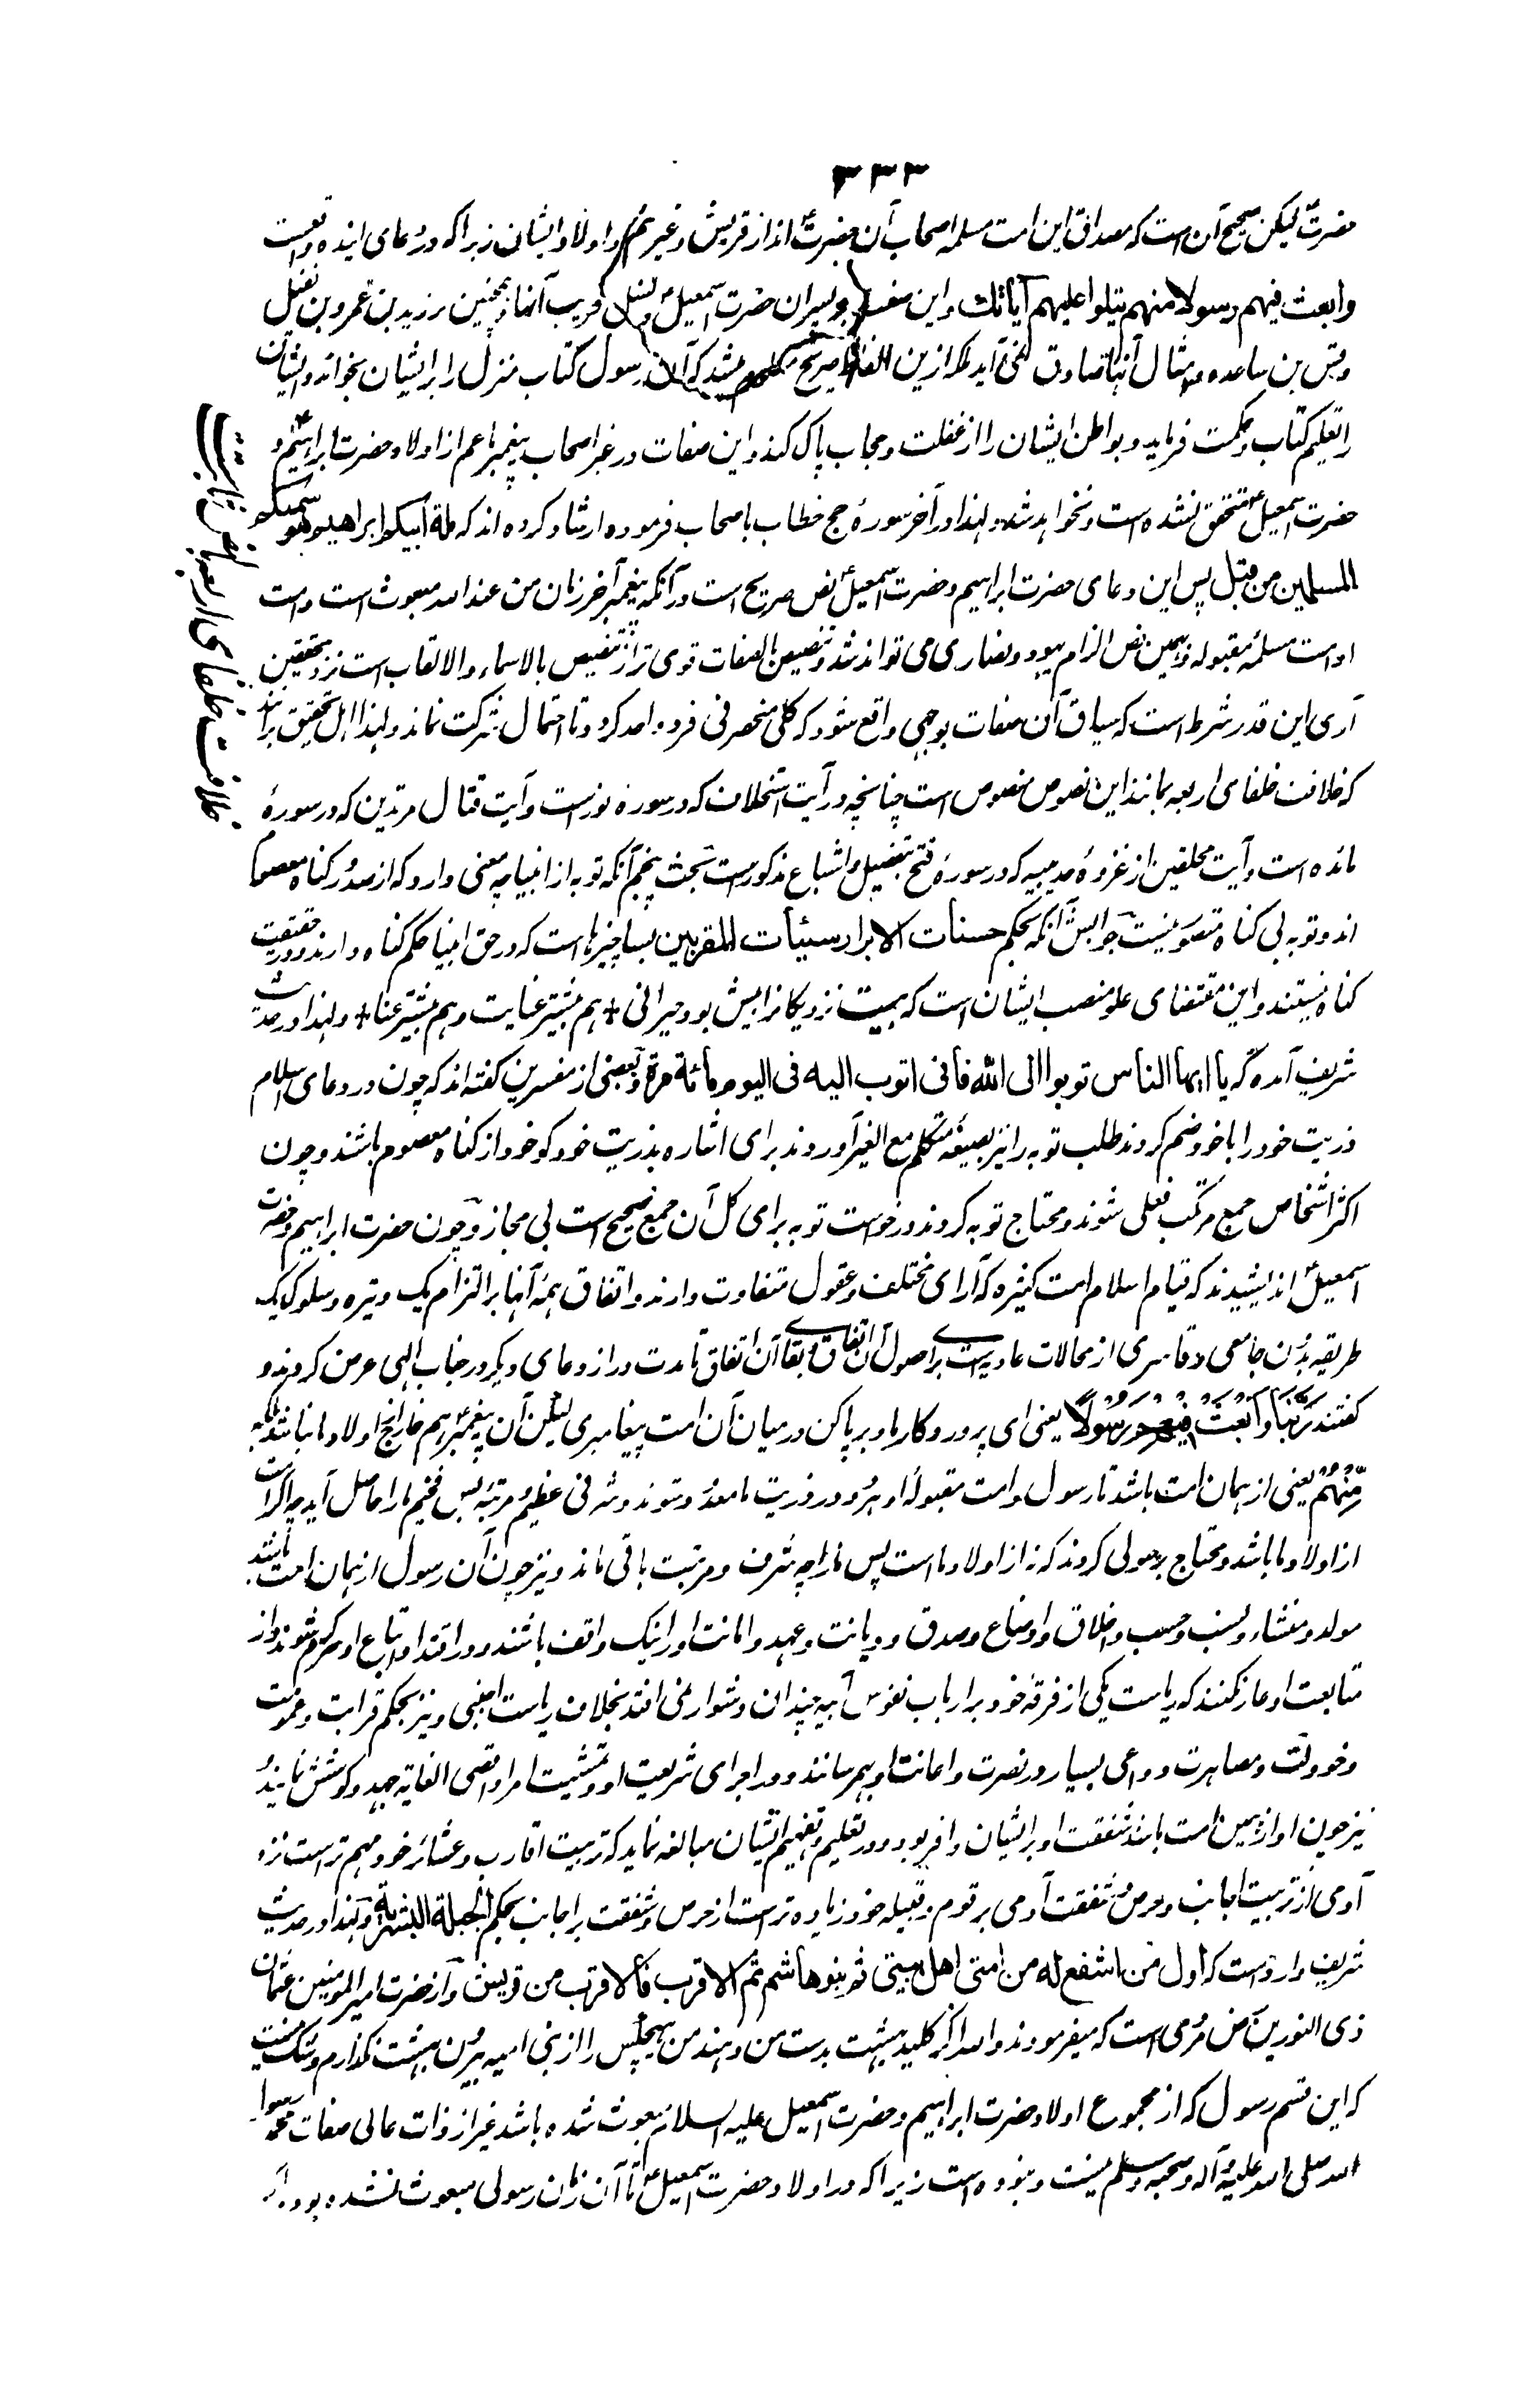 ۳۳۳
حضرتؐ لیکن صحیح آن است که مصداق این امت مسلمه اصحاب آن حضرتؐ اند از قریش و غیرهم و اولاد ایشان زیرا که در دعای آینده واقعست
وابعث فیهم رسولا منهم یتلوا علیهم آیاتك و این بر پسران حضرت اسمعیلؑ و نسل قریب آنها و همچنین بر زید بن عمرو بن نفیل
و قس بن ساعده و امثال آنها صادق نمی آید بلکه ازین الفاظ صریح معلوم میشد که آن رسول کتاب منزل را بر ایشان بخواند و ایشان
را تعلیم کتاب و حکمت فرماید و بواطن ایشان را از غفلت و حجاب پاک کند و این صفات در غیر اصحاب پیغمبر ما عم از اولاد حضرت ابراهیمؑ و
حضرت اسمعیلؑ متحقق نشده است و نخواهد شد و لهذا در آخر سورۀ حج خطاب باصحاب فرموده ارشاد کرده اند که ملة ابیکم ابراهیم هو سمیکم
المسلمین من قبل پس این دعای حضرت ابراهیم و حضرت اسمعیلؑ نص صریح است در آنکه پیغمبر آخر زمان من عند الله مبعوث است و امت
او امت مسلمۀ مقبوله و بهمین نص الزام یهود و نصاری می تواند شد و تنصیص بالصفات قوی تر از تنصیص بالاسماء و الالقاب است نزد محققین
آری این قدر شرط است که سیاق آن صفات بوجهی واقع شود که کلی منحصر فی فرد واحد گردد تا احتمال شرکت نماند و لهذا اهل تحقیق برآنند
که خلافت خلفای اربعه بمانند این نصوص منصوص است چنانچه در آیت استخلاف که در سوره نورست و آیت قتال مرتدین که در سورۀ
مائده است و آیت مخلفین از غزوۀ حدیبیه که در سورۀ فتح بتفصیل و اشباع مذکور است بحث پنجم آنکه توبه از انبیا چه معنی دارد که از صدور گناه معصوم
اند و توبه بی گناه متصور نیست جوابش آنکه بحکم حسنات الابرار سیئات المقربین بسا چیزها است که در حق انبیا حکم گناه دارند و در حقیقت
گناه نیستند و این مقتضای علو منصب ایشان است که بیت نزدیکانرا بیش بود حیرانی + هم بیشتر عنایت و هم بیشتر عنا + و لهذا در حدیث
شریف آمده که یا ایها الناس توبوا الی الله فانی اتوب الیه فی الیوم مائة مرة و بعضی از مفسرین گفته اند که چون در دعای اسلام
ذریت خود را با خود ضم کردند طلب توبه را نیز بصیغۀ متکلم مع الغیر آوردند برای اشاره بذریت خود گو خود از گناه معصوم باشند و چون
اکثر اشخاص جمع مرتکب فعلی شوند و محتاج توبه گردند درخواست توبه برای کل آن جمع صحیح است بی مجاز و چون حضرت ابراهیم و حضرت
اسمعیلؑ اندیشیدند که قیام اسلام امت کثیره که آرای مختلف و عقول متفاوت دارند و اتفاق همه آنها بر التزام یک وتیره و سلوک یک
طریقه بدون جامعی و قاسری از محالات عادیست برای حصول آن اتفاق و بقای آن اتفاق تا مدت دراز دعای دیگر در جناب الهی عرض کردند و
گفتند رَبَّنَا وَابْعَثْ فِيهِمْ رَسُولًا یعنی ای پروردگار ما و برپا کن در میان آن امت پیغامبری لیکن آن پیغمبر هم خارج از اولاد ما نباشد بلکه
مِّنْهُمْ یعنی از همان امت باشد تا رسول و امت مقبولۀ او هر دو در ذریت ما معدود شوند و شرفی عظیم و مرتبه بس فخیم ما را حاصل آید چه اگر امت
از اولاد ما باشد و محتاج برسولی گردند که نه از اولاد ما است پس ما را چه شرف و مرتبت باقی ماند و نیز چون آن رسول از همان امت باشد
مولد و منشاء و نسب و حسب و اخلاق و اوضاع و صدق و دیانت و عهد و امانت او را نیک واقف باشند و در اقتدا و اتباع او سرگرم شوند و از
متابعت او عار نکنند که ریاست یکی از فرقه خود بر ارباب نفوس آبیه چندان دشوار نمی افتد بخلاف ریاست اجنبی و نیز بحکم قرابت و عمومت
و خوولت و مصاهرت دواعی بسیار در نصرت و اعانت او بهم رسانند و در اجرای شریعت او و تمشیت امر او اقصی الغایه جهد و کوشش نمایند و
نیز چون او از همین امت باشد شفقت او بر ایشان وافر بود و در تعلیم و تفهیم ایشان مبالغه نماید که تربیت اقارب و عشائر خود مهم ترست نزد
آدمی از تربیت اجانب و حرص و شفقت آدمی بر قوم و قبیله خود زیاده ترست از حرص و شفقت بر اجانب بحکم الجبلة البشریة و لهذا در حدیث
شریف وارد است که اول من اشفع له من امتی اهل بیتی ثم بنو هاشم ثم الاقرب فالاقرب من قریش و از حضرت امیر المومنین عثمان
ذی النورین رض مروی است که میفرمودند والله اگر کلید بهشت بدست من دهند من هیچکس را از بنی امیه بیرون بهشت نگذارم و شک نیست
که این قسم رسول که از مجموع اولاد حضرت ابراهیم و حضرت اسمعیل علیه السلام مبعوث شده باشد غیر از ذات عالی صفات محمد رسول
الله صلی الله علیه و آله و صحبه و سلم نیست و نبوده است زیرا که در اولاد حضرت اسمعیلؑ تا آن زمان رسولی مبعوث نشده بود
خلافت خلفای اربعه بنص ثابت است